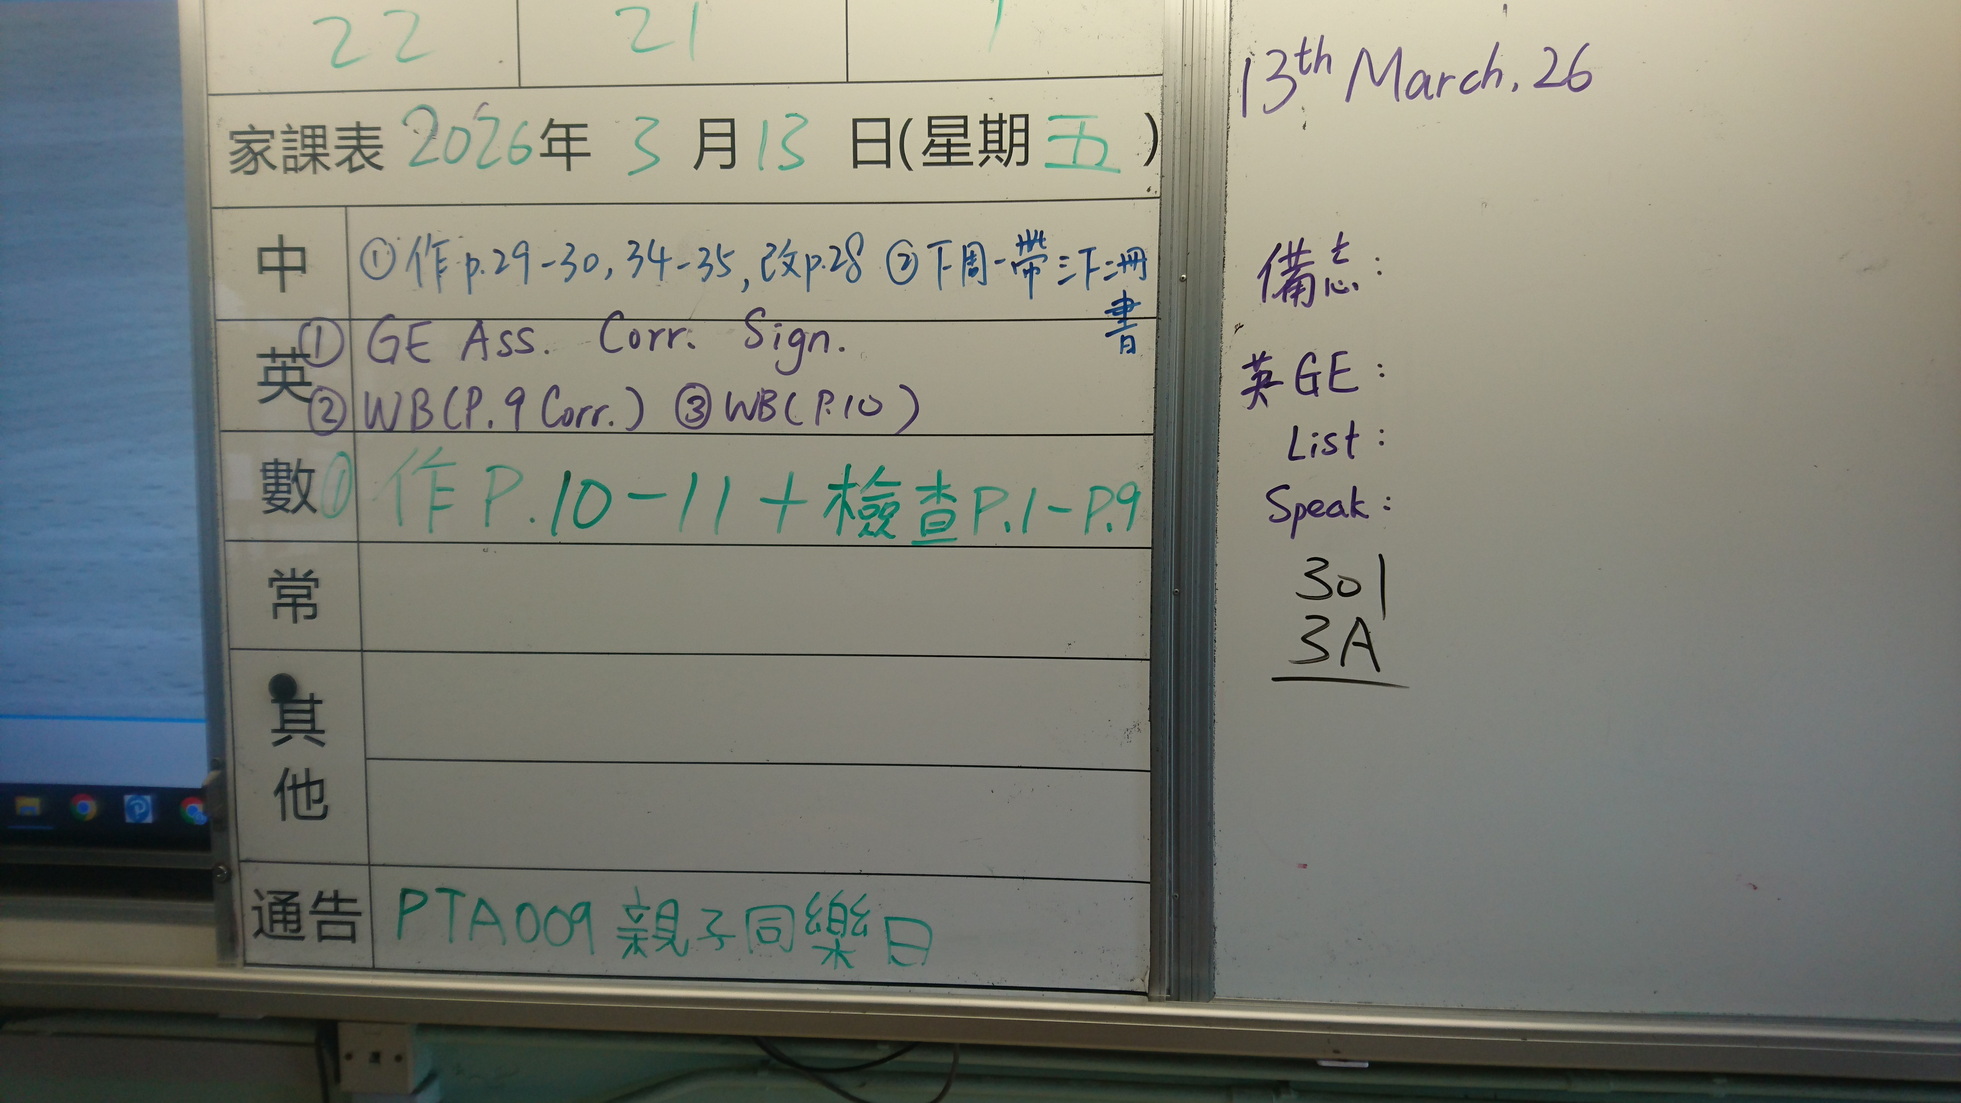 22 21 1
家課表 2026年 3月13日(星期五)
中 ①作p.29-30, 34-35, 改p.28 ②下周一帶三下二冊書
英 ① GE Ass. Corr. Sign.
② WB(P.9 Corr.) ③ WB(P.10)
數 ① 作P.10-11+檢查P.1-P.9
常
其他
通告 PTA009親子同樂日
13th March, 26
備忘:
英GE:
List:
Speak:
301
3A